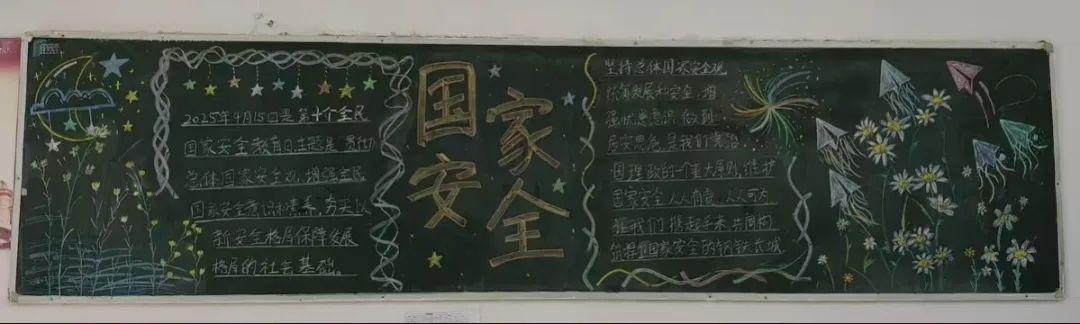 2025年4月15日是第十个全民
国家安全教育日主题是 贯彻
总体国家安全观,增强全民
国家安全意识和素养,夯实以
新安全格局保障发展
格局的社会基础。
国家
安全
坚持总体国家安全观
统筹发展和安全,增
强忧患意识,做到
居安思危,是我们党治
国理政的一个重大原则,维护
国家安全 人人有责,人人可为
让我们 携起手来 共同构
筑 国家安全的钢铁长城